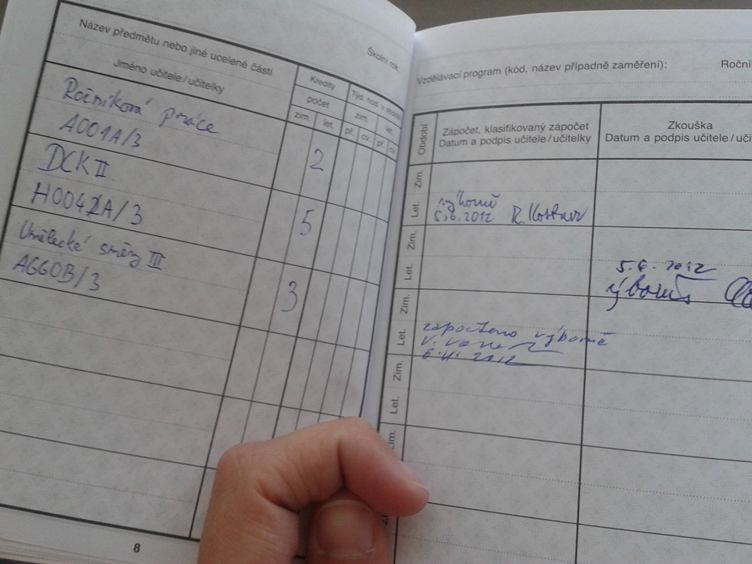 Název předmětu nebo jiné ucelené části
Školní rok:
Jméno učitele/učitelky
Kredity
Týd. hod. v
počet
zim.
zim. let.
zim. let.
př. cv. př. cv.
Ročníková práce
A001A/3
2
DCK II
H0042A/3
5
Umělecké směry III
AGGOB/3
3
8
Vzdělávací program (kód, název případně zaměření):
Roční
Období
Zápočet, klasifikovaný zápočet
Datum a podpis učitele/učitelky
Zkouška
Datum a podpis učitele/uči
Zim.
Let.
výborně
5.6.2012
Zim.
Let.
5.6.2012
výborně
Zim.
Let.
započteno výborně
2012
Zim.
Let.
Zim.